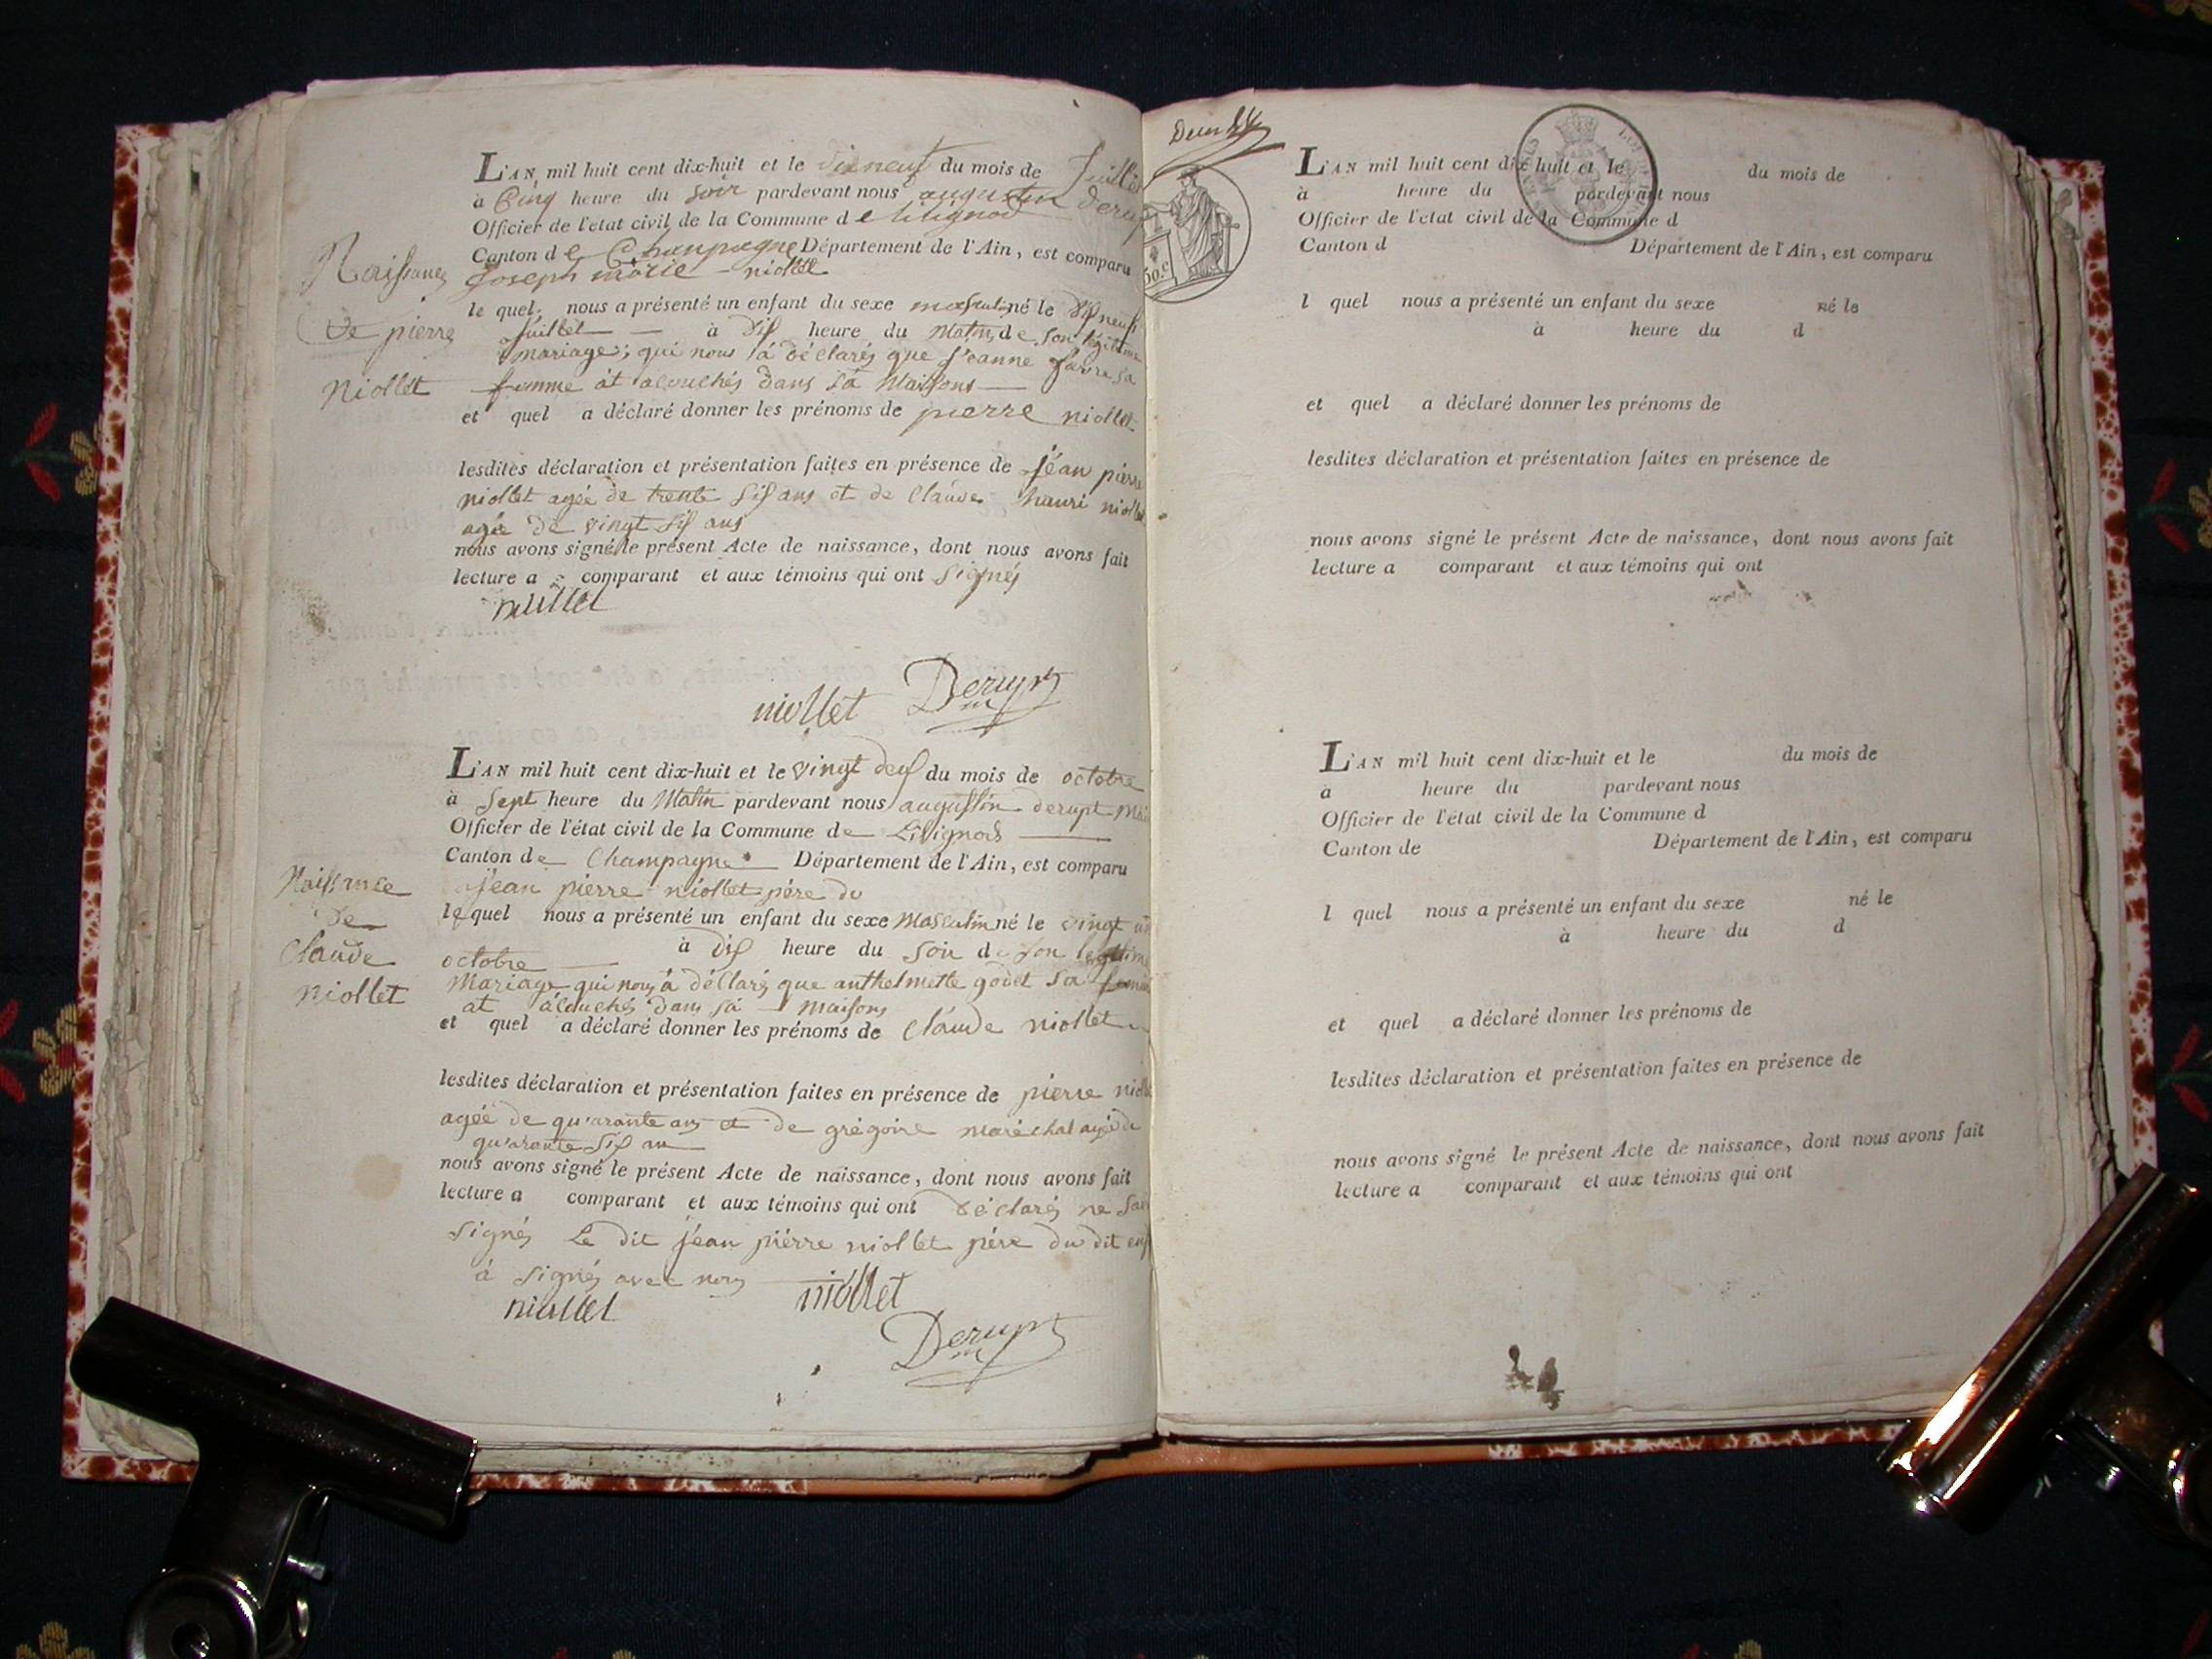 L'AN mil huit cent dix-huit et le dixneuf du mois de Juillet
à Cinq heure du soir pardevant nous augustin derupt
Officier de l'état civil de la Commune de litignod
Canton de Champagne Département de l'Ain, est comparu
Joseph marie niollet
le quel nous a présenté un enfant du sexe masculin né le dix neuf
Juillet à dix heure du Matin de son légitime
mariage; qui nous à déclarés que jéanne favre sa
femme àt acouchés dans sa Maisons
et quel a déclaré donner les prénoms de pierre niollet
lesdites déclaration et présentation faites en présence de jéan pierre
niollet agée de trente six ans et de Claude hauri niollet
agée de vingt six ans
nous avons signé le présent Acte de naissance, dont nous avons fait
lecture a comparant et aux témoins qui ont signés
niollet
niollet Derupt
Naissance
De pierre
Niollet
L'AN mil huit cent dix-huit et le vingt deux du mois de octobre
à Sept heure du Matin pardevant nous augustin derupt
Officier de l'état civil de la Commune de Litignod
Canton de Champagne Département de l'Ain, est comparu
jean pierre niollet père du
le quel nous a présenté un enfant du sexe Masculin né le vingt un
octobre à dix heure du soir de son legitime
Mariage qui nous à déclarés que anthelmette godet sa femme
at acouchés dans sa maisons
et quel a déclaré donner les prénoms de claude niollet
lesdites déclaration et présentation faites en présence de pierre niollet
agée de quarante ans et de grégoire maréchal agée de
quarante six an
nous avons signé le présent Acte de naissance, dont nous avons fait
lecture a comparant et aux témoins qui ont déclarés ne
signés Le dit jean pierre niollet père du dit
à signés avec nous
niollet niollet
Derupt
Naissance
De
Claude
Niollet
50.c
L'AN mil huit cent dix huit et le du mois de
à heure du pardevant nous
Officier de l'état civil de la Commune d
Canton d Département de l'Ain, est comparu
l quel nous a présenté un enfant du sexe né le
à heure du d
et quel a déclaré donner les prénoms de
lesdites déclaration et présentation faites en présence de
nous avons signé le présent Acte de naissance, dont nous avons fait
lecture a comparant et aux témoins qui ont
L'AN mil huit cent dix-huit et le du mois de
à heure du pardevant nous
Officier de l'état civil de la Commune d
Canton de Département de l'Ain, est comparu
l quel nous a présenté un enfant du sexe né le
à heure du d
et quel a déclaré donner les prénoms de
lesdites déclaration et présentation faites en présence de
nous avons signé le présent Acte de naissance, dont nous avons fait
lecture a comparant et aux témoins qui ont